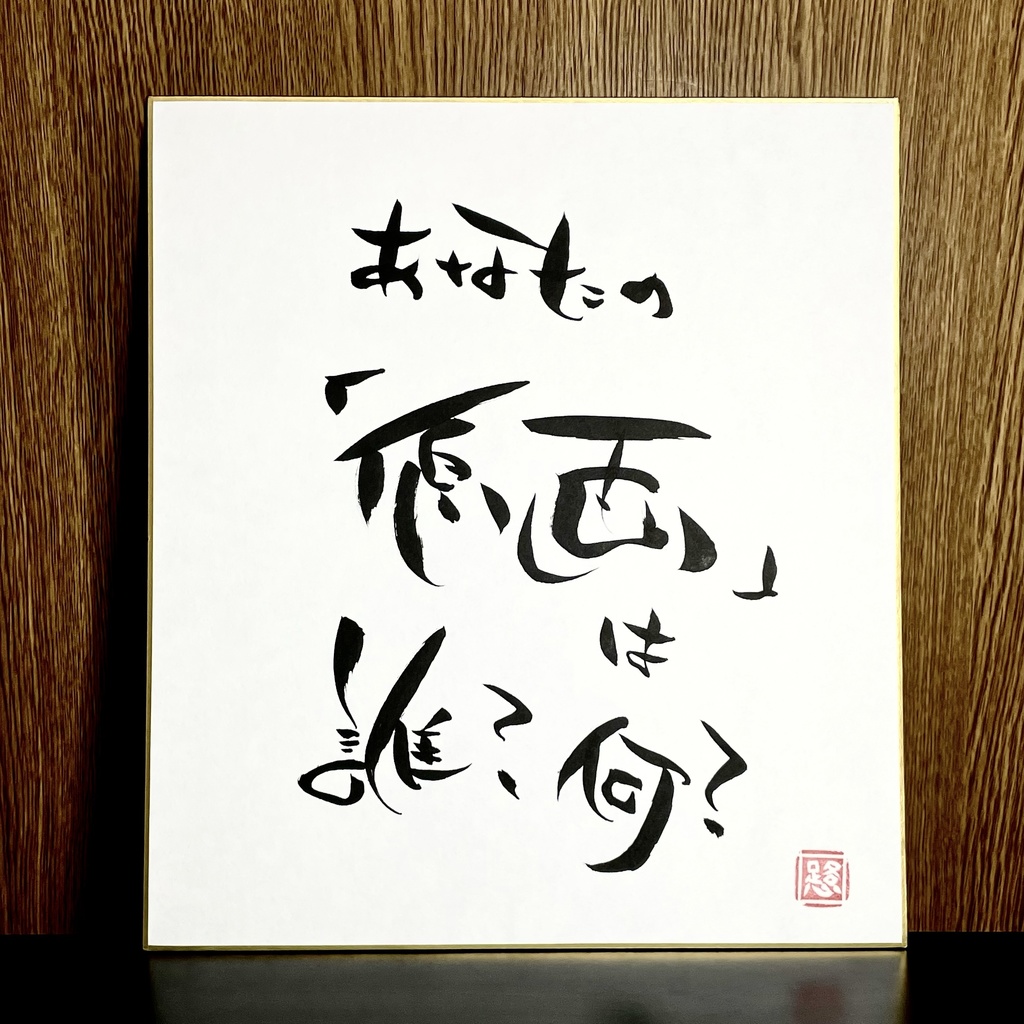 あなたの
「原画」
は
誰?何?